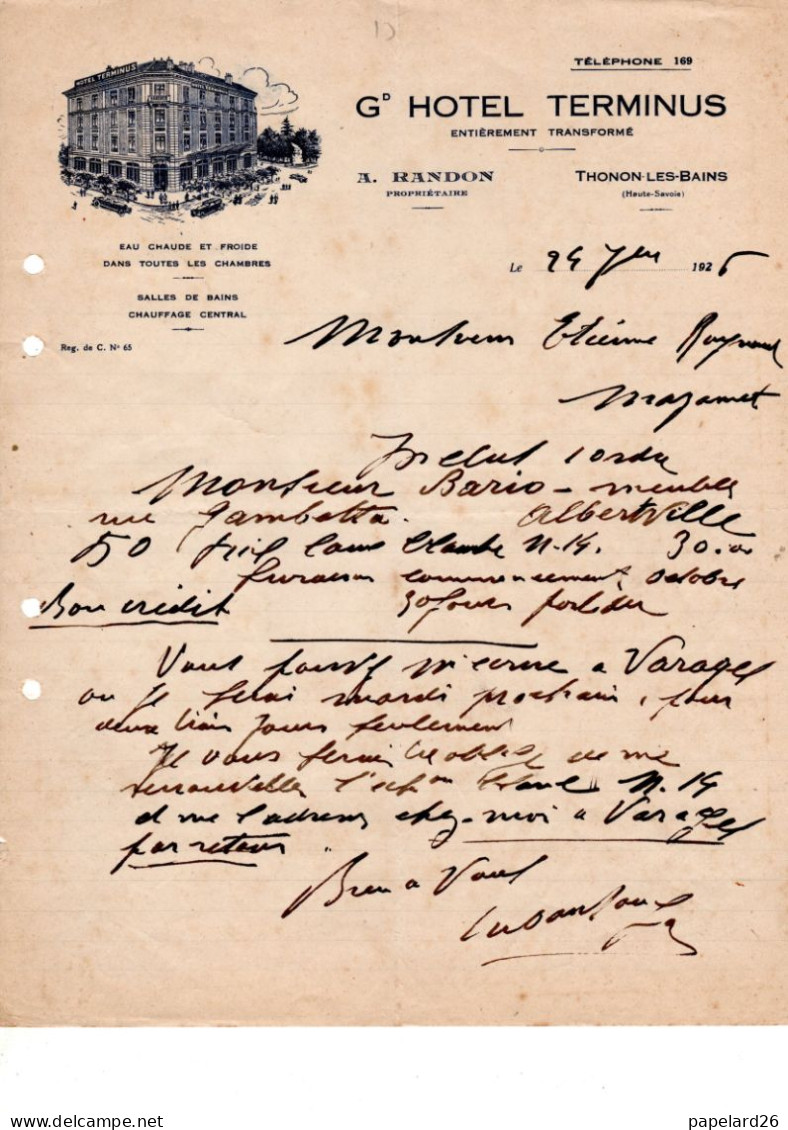 TÉLÉPHONE 169
HOTEL TERMINUS
Gᴰ HOTEL TERMINUS
ENTIÈREMENT TRANSFORMÉ
A. RANDON
PROPRIÉTAIRE
THONON-LES-BAINS
(Haute-Savoie)
EAU CHAUDE ET FROIDE
DANS TOUTES LES CHAMBRES
SALLES DE BAINS
CHAUFFAGE CENTRAL
Reg. de C. N° 65
Le 24 1926
Monsieur Etienne
Mazamet
Inclus 1 ordre
Monsieur Bario - meubles
rue Gambetta. Albertville
50 laine N. 14. 30.00
livraison commencement octobre
Bon crédit 30 jours
Vous m'écrire a Varages
ou je serai mardi prochain, pour
deux trois jours seulement
Je vous serai de me
renouveller l'echon N. 14
et me l'adresser chez-moi a Varages
par retour.
Bien a Vous
papelard26